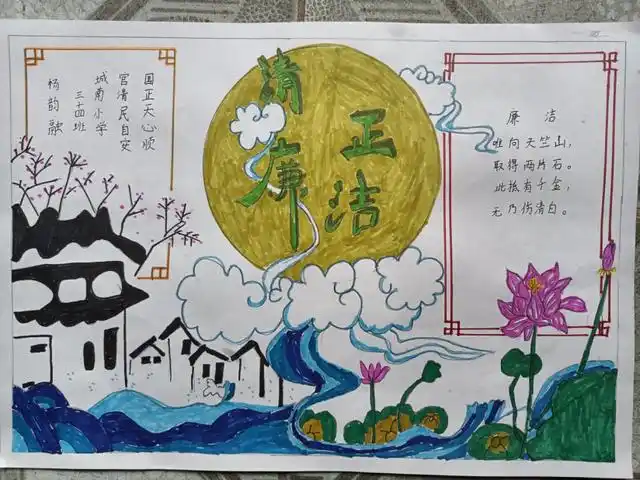 清正
廉洁
国正天心顺
官清民自安
城南小学
三十四班
杨韵融
廉洁
唯向天竺山，
取得两片石。
此抵有千金，
无乃伤清白。